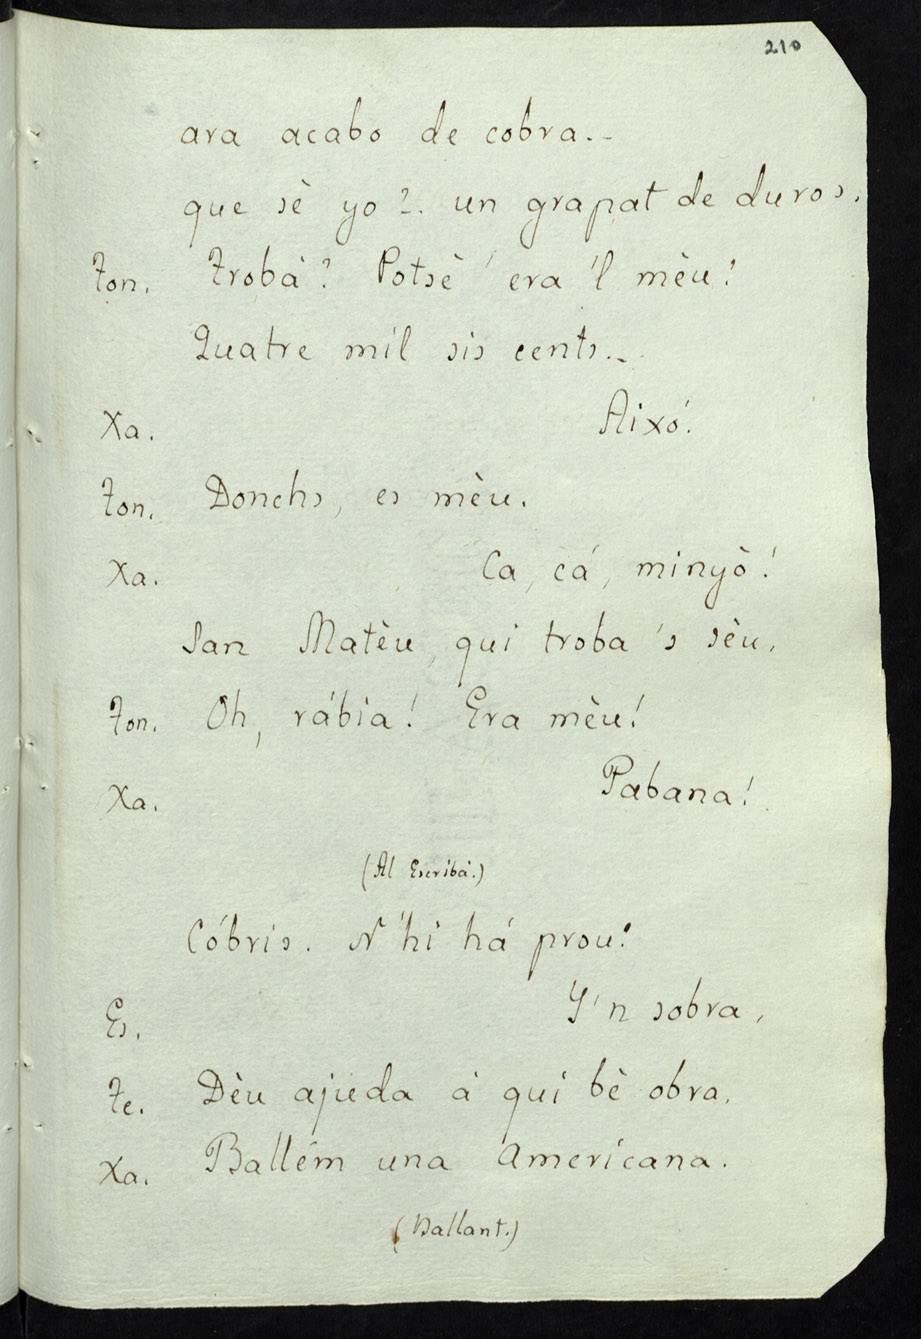 210
ara acabo de cobra..
que sè yo?. un grapat de duros.
Ton. Trobá? Potsè era 'l mèu!
Quatre mil sis cents...
Xa. Aixó!
Ton. Donchs, es mèu.
Xa. Ca, cá, minyò!
San Matèu, qui troba 's sèu.
Ton. Oh, rábia! Era mèu!
Xa. Pabana!
(Al Escribá.)
Cóbris. N'hi há prou!
Es. Y'n sobra,
Te. Dèu ajuda á qui bè obra.
Xa. Ballém una Americana.
(Ballant.)